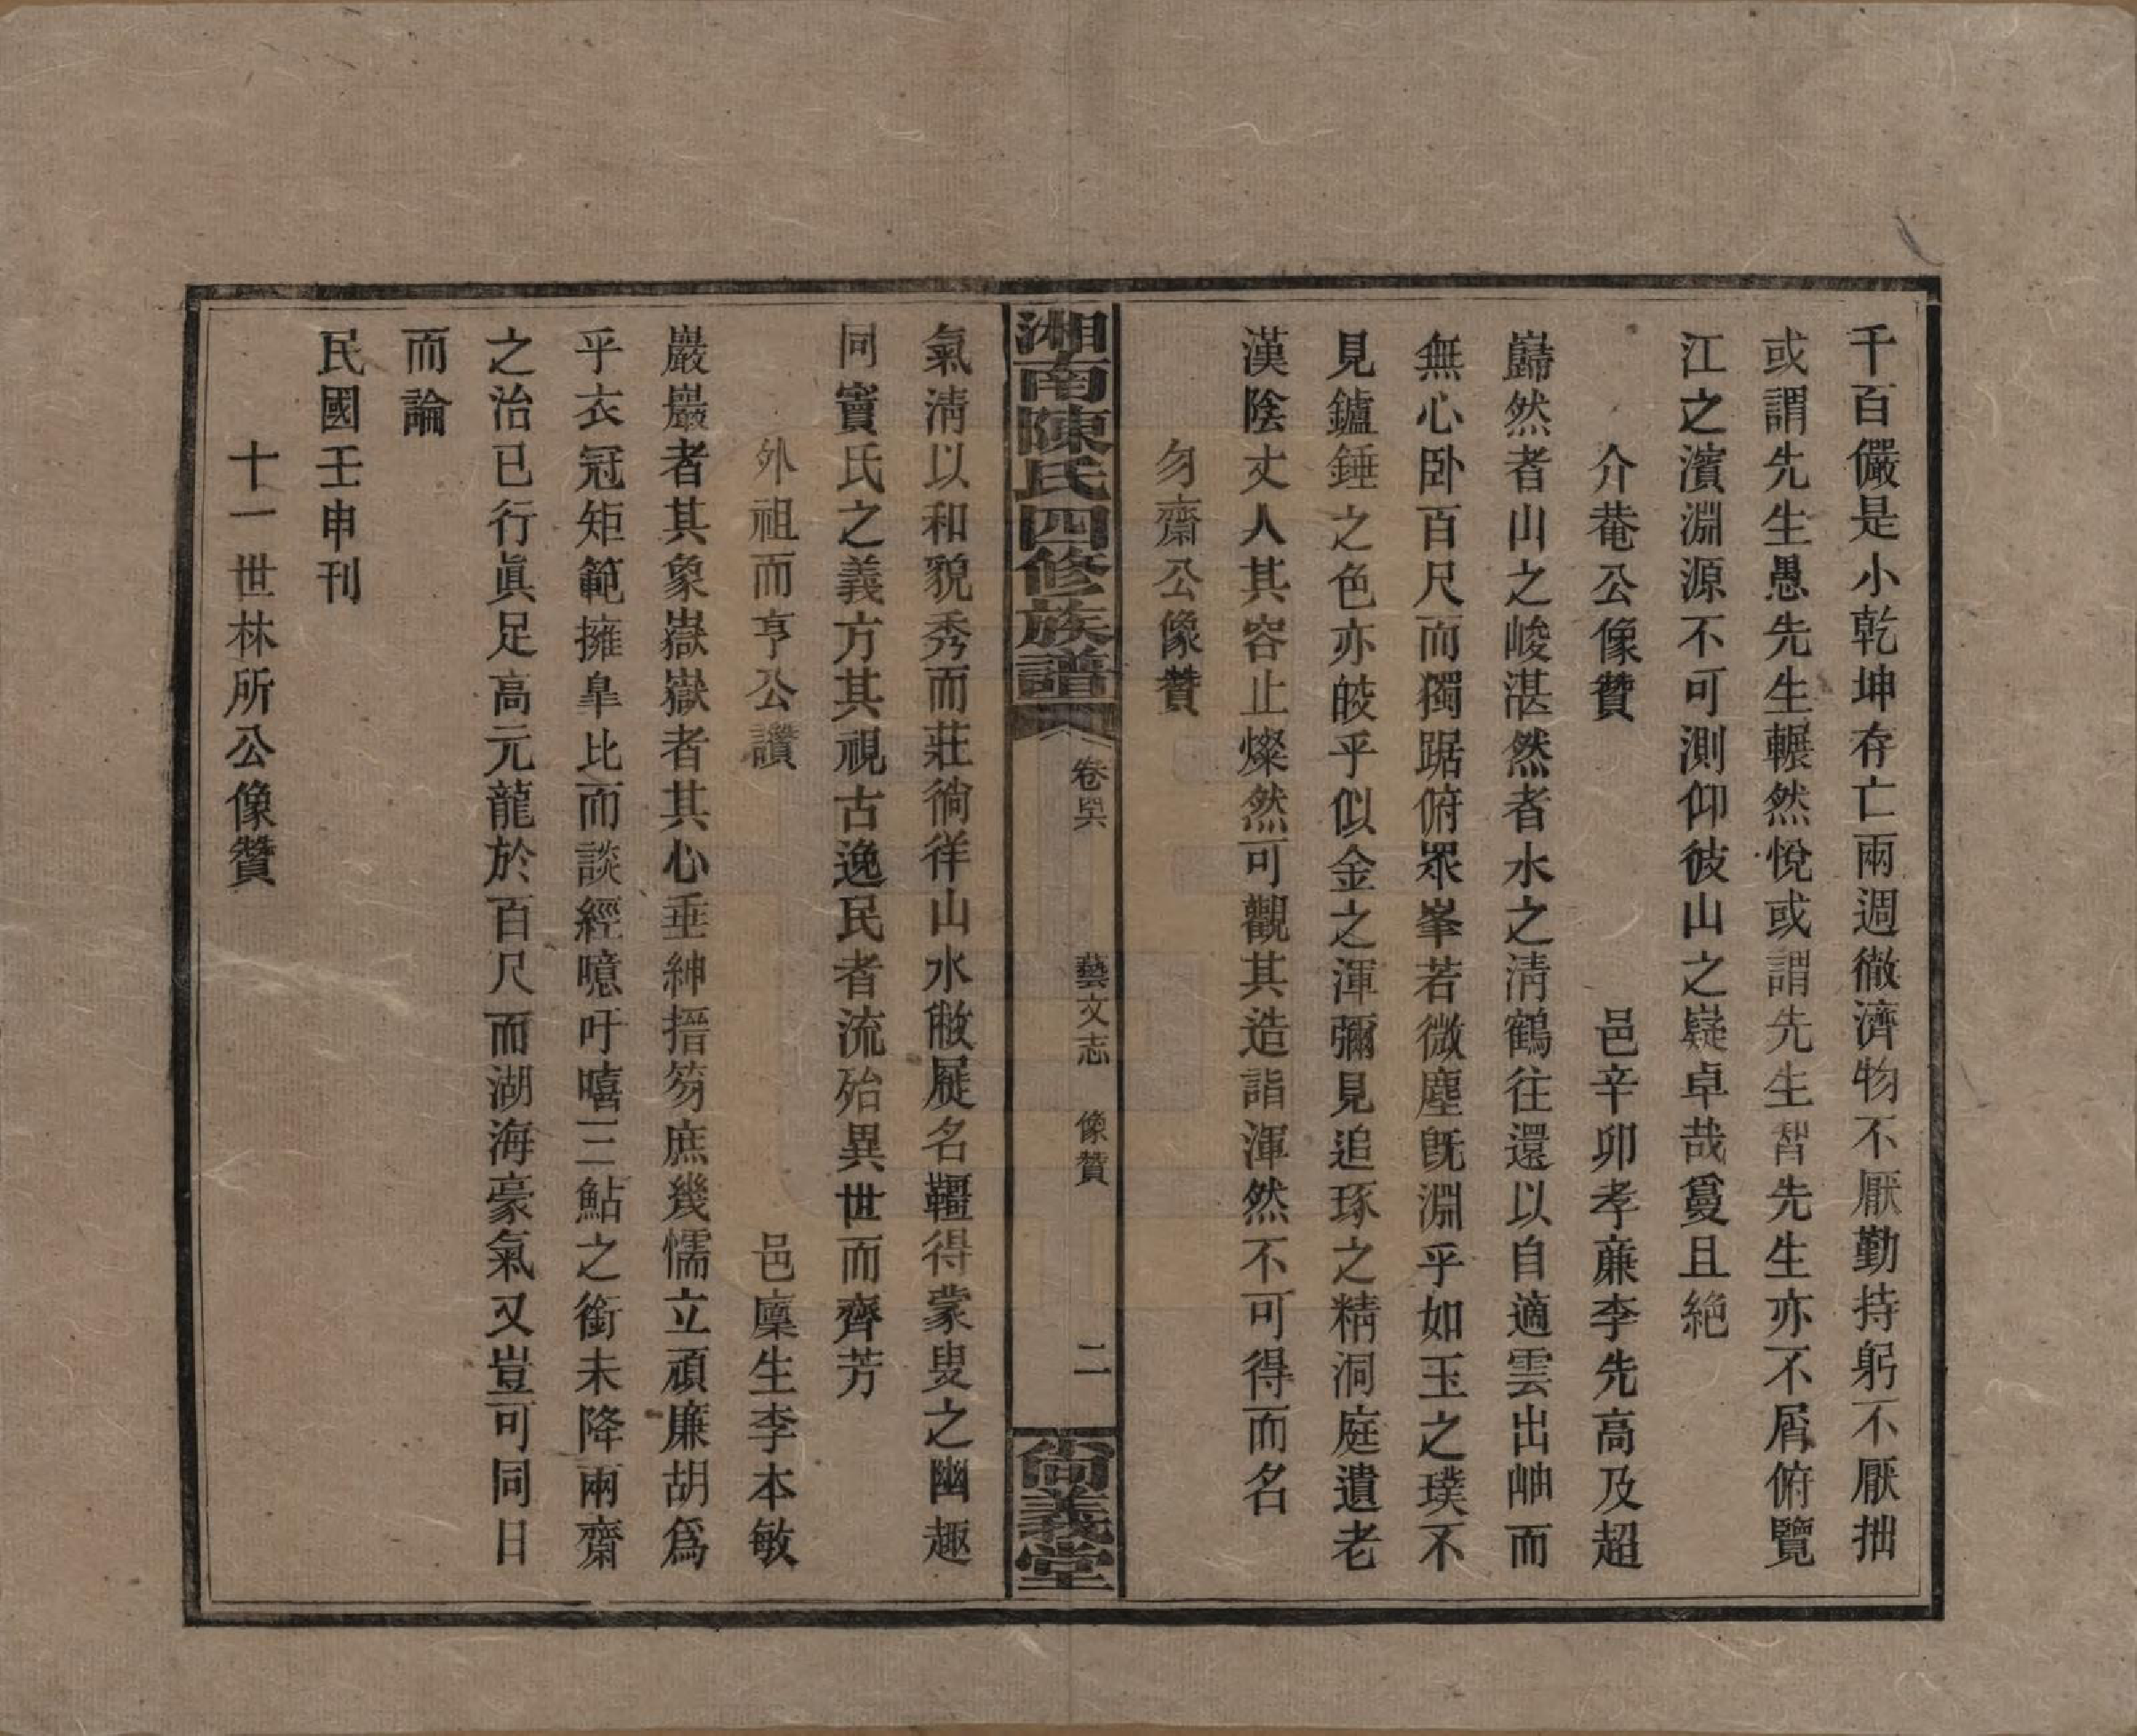 千百儼是小乾坤存亡兩週徹濟物不厭勤持躬不厭拙
或謂先生愚先生輾然悅或謂先生智先生亦不屑俯覽
江之濱淵源不可測仰彼山之嶷卓哉敻且絶
介菴公像贊　邑辛卯孝廉李先高及超
巋然者山之峻湛然者水之淸鶴往還以自適雲出岫而
無心卧百尺而獨踞俯眾峯若微塵旣淵乎如玉之璞不
見鑪錘之色亦皎乎似金之渾彌見追琢之精洞庭遺老
漢陰丈人其容止燦然可觀其造詣渾然不可得而名
勿齋公像贊
湘南陳氏四修族譜　卷　藝文志　像贊　二　尙義堂
氣淸以和貌秀而莊徜徉山水敝屣名韁得蒙叟之幽趣
同竇氏之義方其視古逸民者流殆異世而齊芳
外祖而亨公讚　邑廩生李本敏
巖巖者其象嶽嶽者其心垂紳搢笏庶幾懦立頑廉胡爲
乎衣冠矩範擁皐比而談經噫吁嘻三鮎之銜未降兩齋
之治已行眞足高元龍於百尺而湖海豪氣又豈可同日
而論
民國壬申刊
十一世林所公像贊